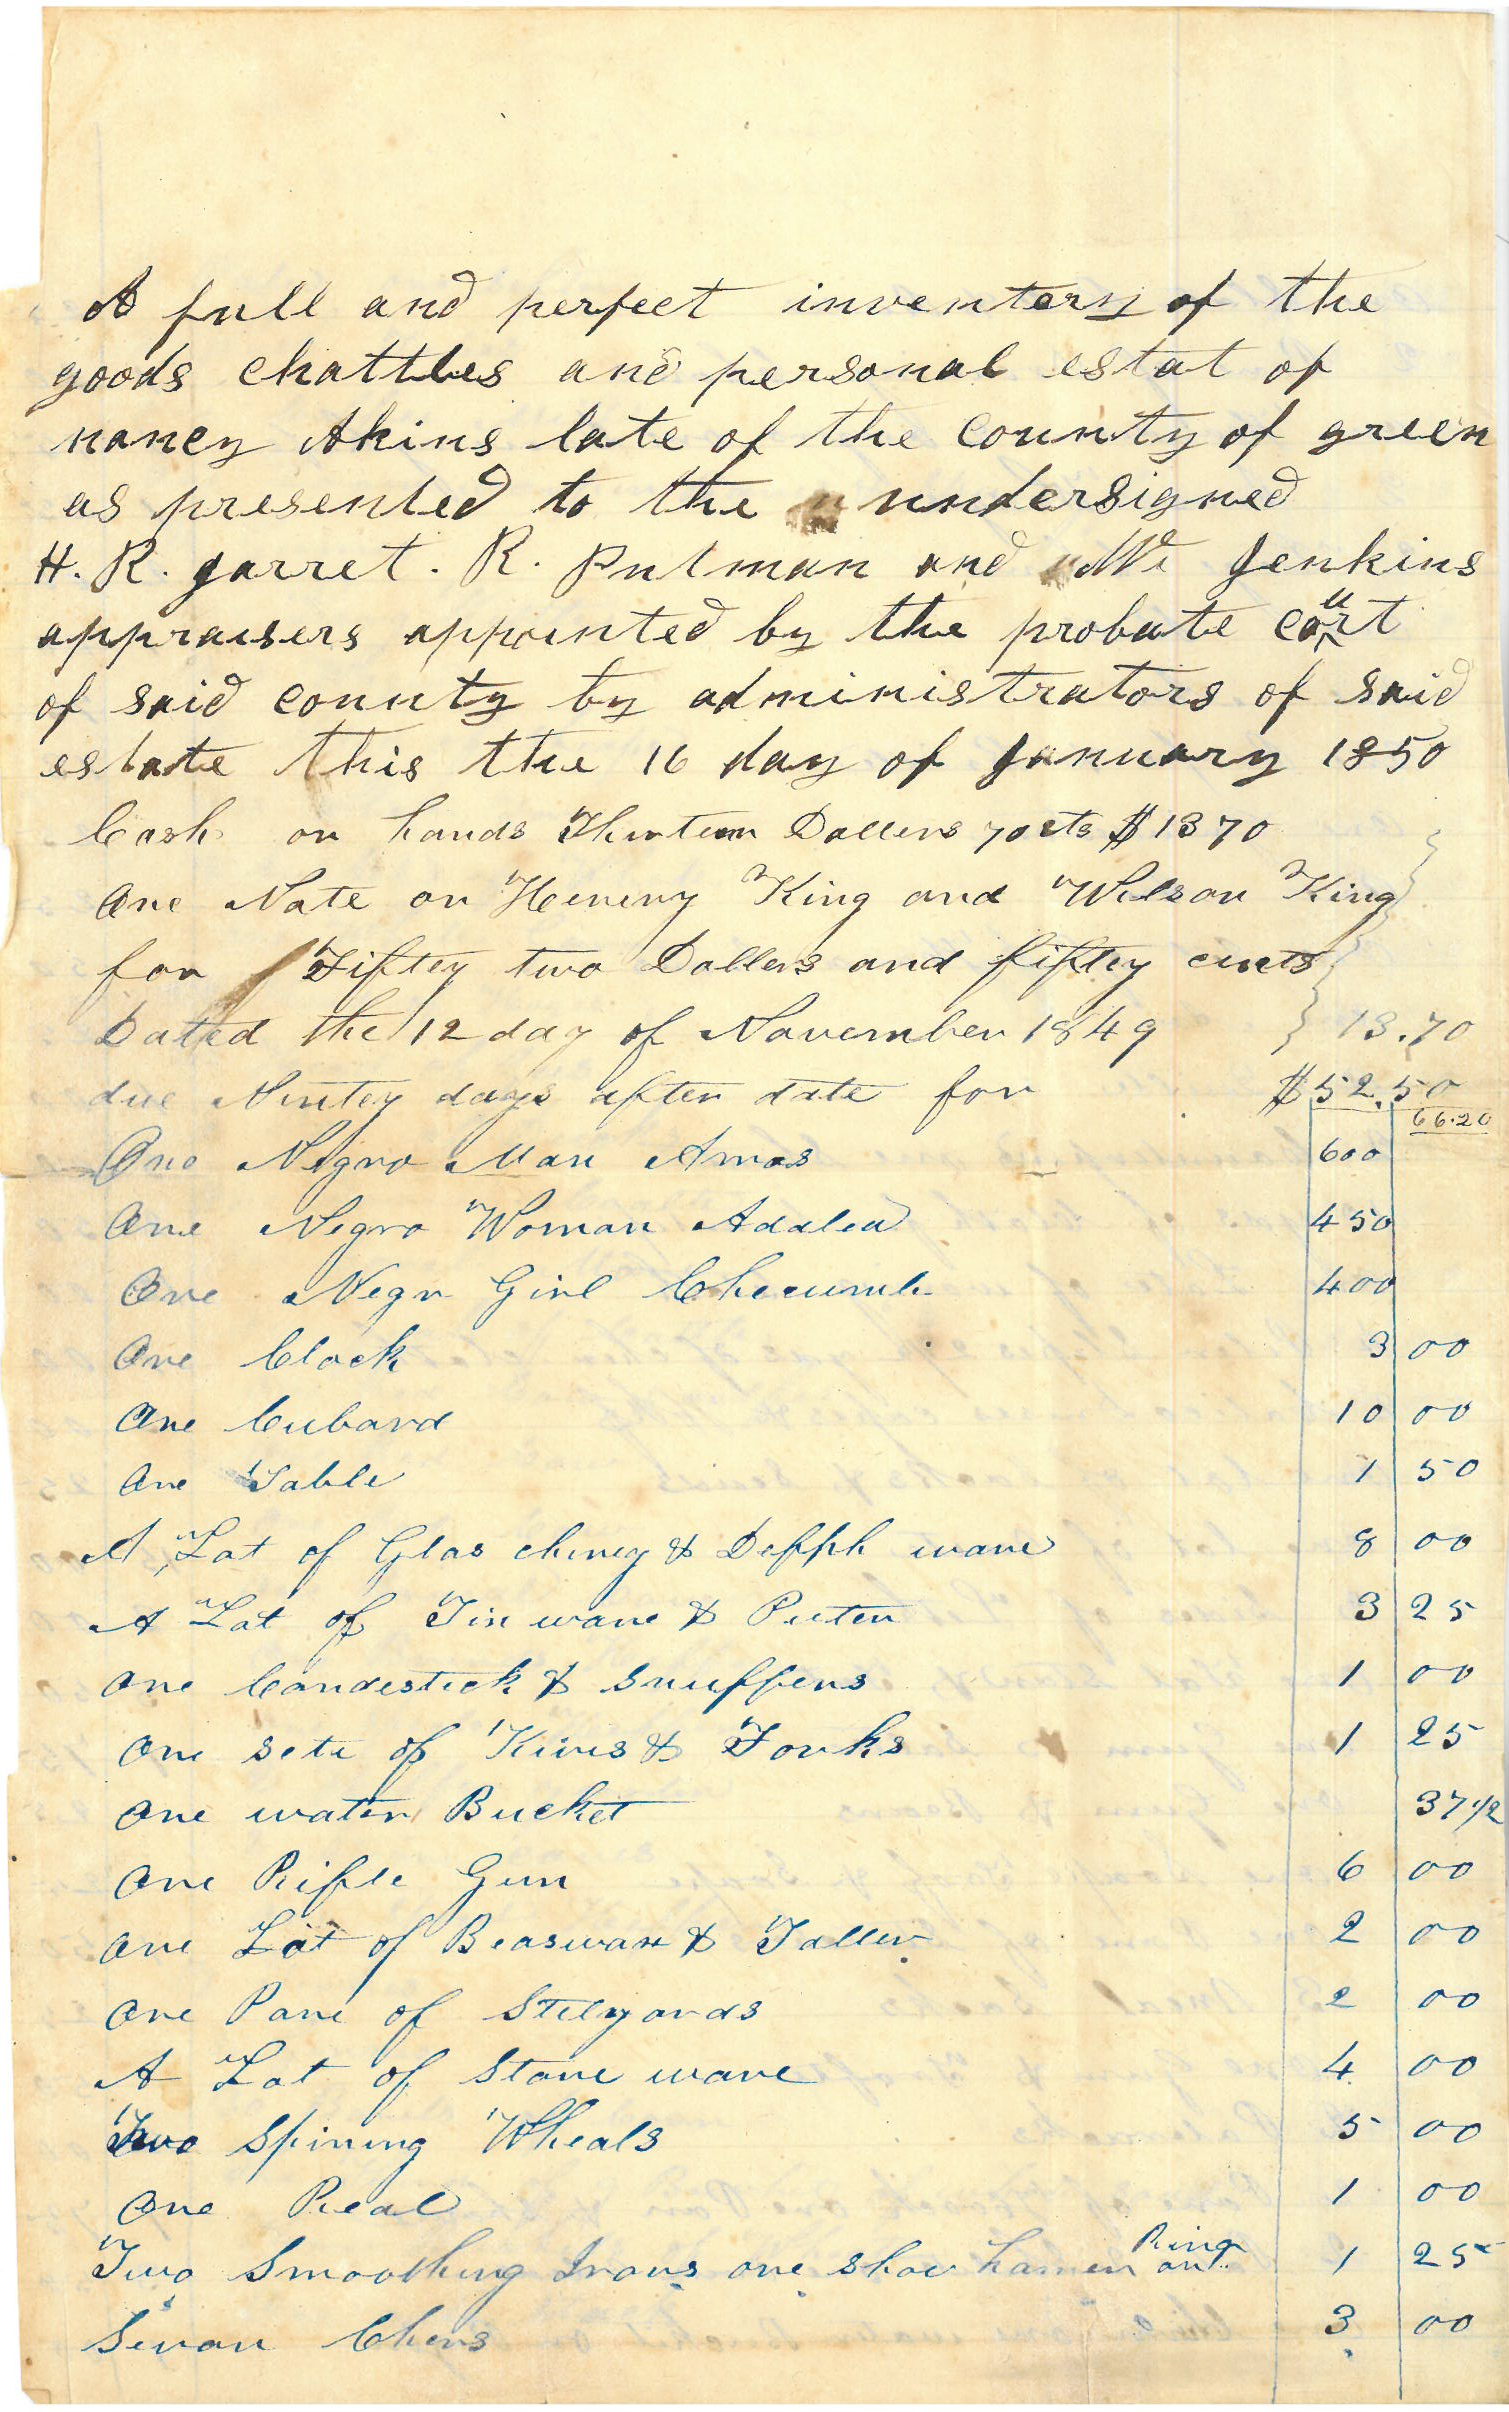 A full and perfect inventery of the
goods chattles and personal estat of
nancy Akins late of the county of green
as presented to the undersigned
H. R. garret. R. Putman and Jenkins
appraisers appointed by the probate court
of said county by administrators of said
estate this the 16 day of January 1850
Cash on hands Thirteen Dollers 70 cts $13 70
One Note on Henery King and Wilson King
for Fiftey two Dollers and fiftey cents
Dated the 12 day of November 1849 13.70
due Nintey days after date for $52.50
66.20
One Negro Man Amos 600
One Negro Woman Adalea 450
One Negr Girl 400
One Clock 3 00
One Cubard 10 00
One Table 1 50
A Lot of Glas chiney & Delfph ware 8 00
A Lot of Tin ware & Puter 3 25
One Candestick & Snuffers 1 00
One sete of Kives & Forks 1 25
One water Bucket 37 1/2
One Rifle Gun 6 00
One Lot of Beaswax & Taller 2 00
One Pare of Stelyards 2 00
A Lot of Stone ware 4 00
Two Spining Wheals 5 00
One Real 1 00
Two Smoothing Irons one shoe hamer Ring 1 25
Sevan Chers 3 00